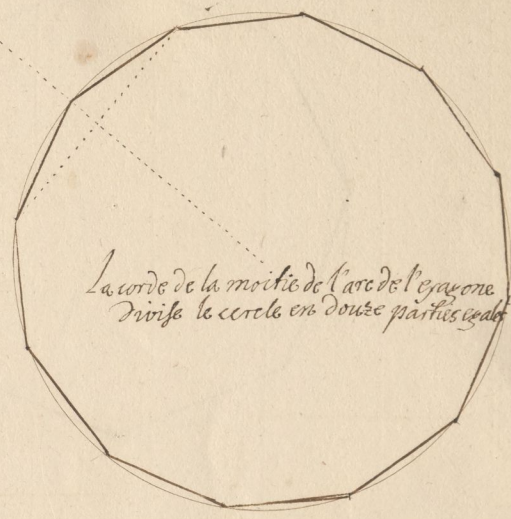 La corde de la moitie de l'arc de l'exagone
Divise le cercle en douze parties egales